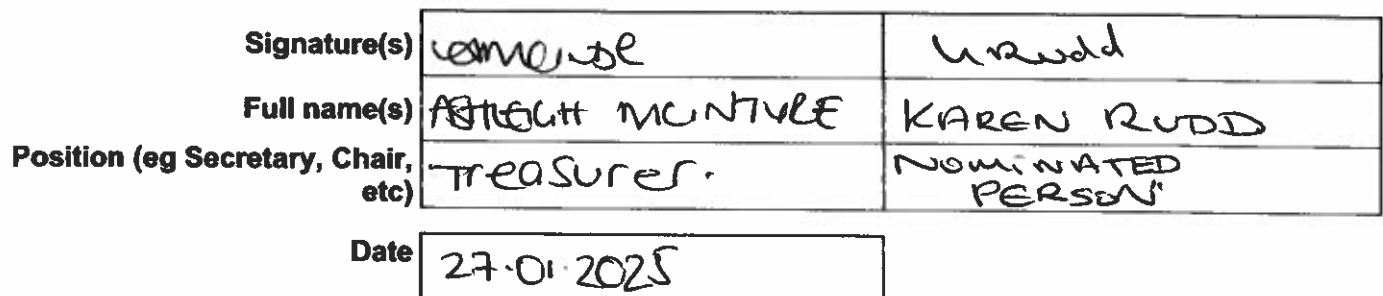 Signature(s) K Rudd
Full name(s) ASHLEIGH MCINTYRE KAREN RUDD
Position (eg Secretary, Chair, Treasurer. NOMINATED
etc) PERSON
Date 27.01.2025